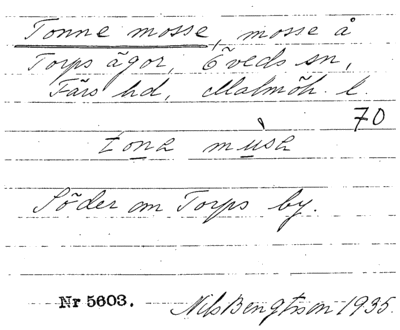 Tonne mosse, mosse å
Torps ägor, Öveds sn,
Färs hd, Malmöh. l.
70
tona mùsa
Söder om Torps by.
Nr 5603. Nils Bengtsson 1935.